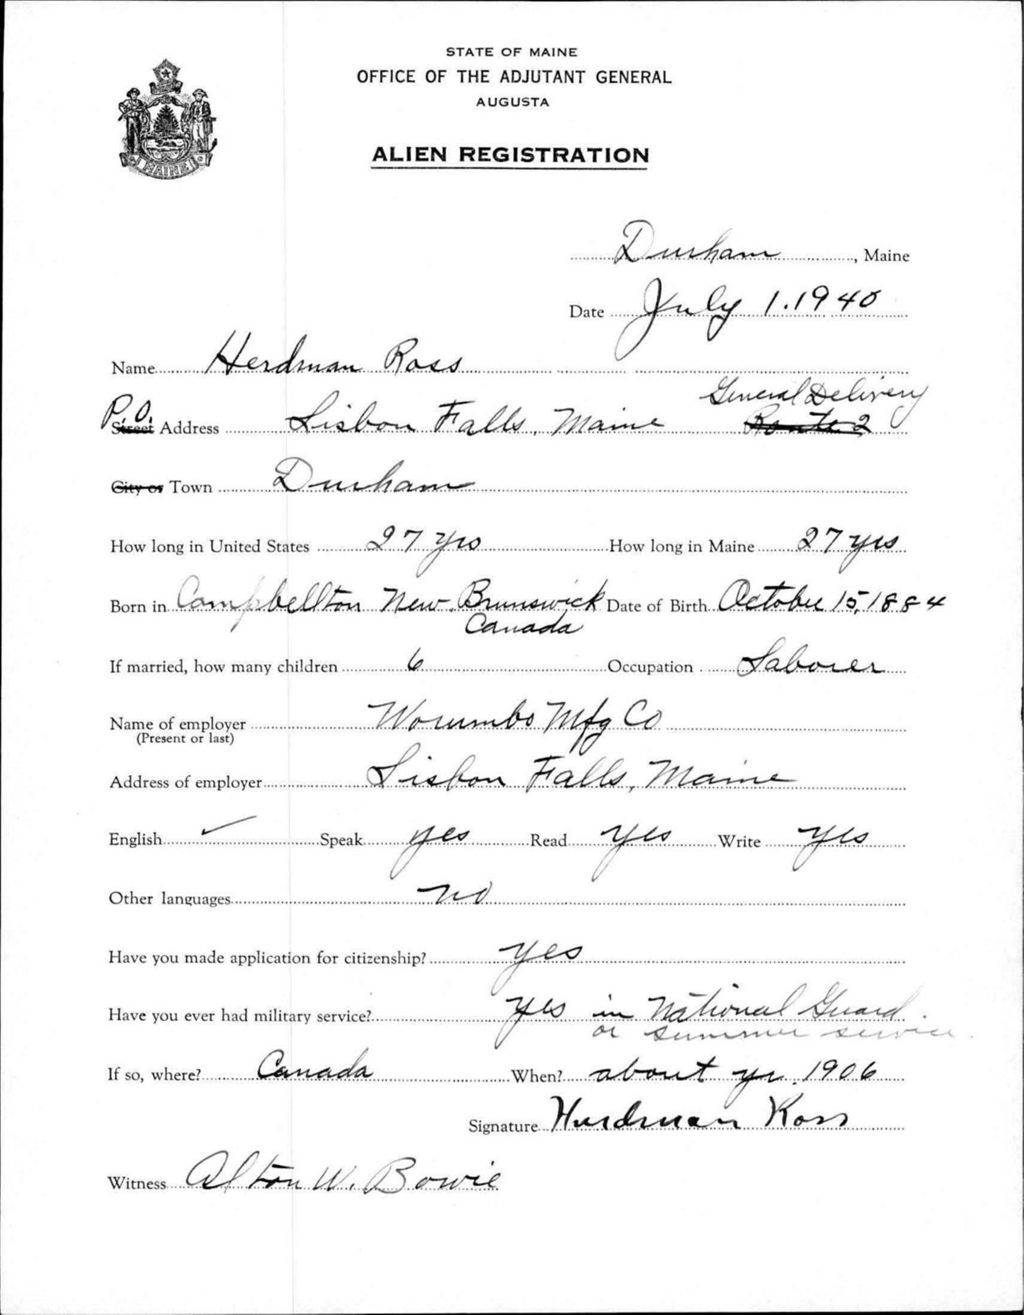 STATE OF MAINE
OFFICE OF THE ADJUTANT GENERAL
AUGUSTA
ALIEN REGISTRATION
MAINE
Durham, Maine
Date July 1. 1940
Name Herdman Ross
General Delivery
P.O. Street Address Lisbon Falls, Maine Route 2
City or Town Durham
How long in United States 27 yrs How long in Maine 27 yrs
Born in Campbellton New Brunswick Date of Birth October 15, 1884
Canada
If married, how many children 6 Occupation Laborer
Name of employer Worumbo Mfg Co
(Present or last)
Address of employer Lisbon Falls, Maine
English ✓ Speak yes Read yes Write yes
Other languages no
Have you made application for citizenship? yes
Have you ever had military service? yes in National Guard
or summer service
If so, where? Canada When? about yr. 1906
Signature Herdman Ross
Witness Alton W. Bowie